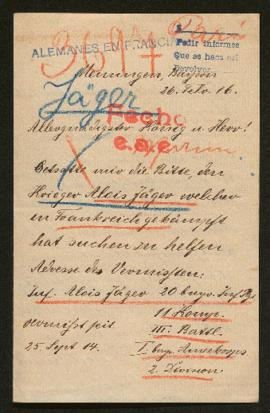 369
ALEMANES EN FRANCIA
Pedir informes
Que se haga así
Devolver
Memmingen, Bayern
26. Febr. 16.
Jäger
Allergnädigster König u. Herr!
Fecho
e.a.e.
Gestatte mir die Bitte, den
Krieger Alois Jäger welcher
in Frankreich gekämpft
hat suchen zu helfen
Adresse des Vermissten:
Inf. Alois Jäger 20 bayr. Inf. Rg.
11 Komp.
vermisst seit
III. Battl.
25 Sept 14.
I bayr. Armeekorps
2. Division